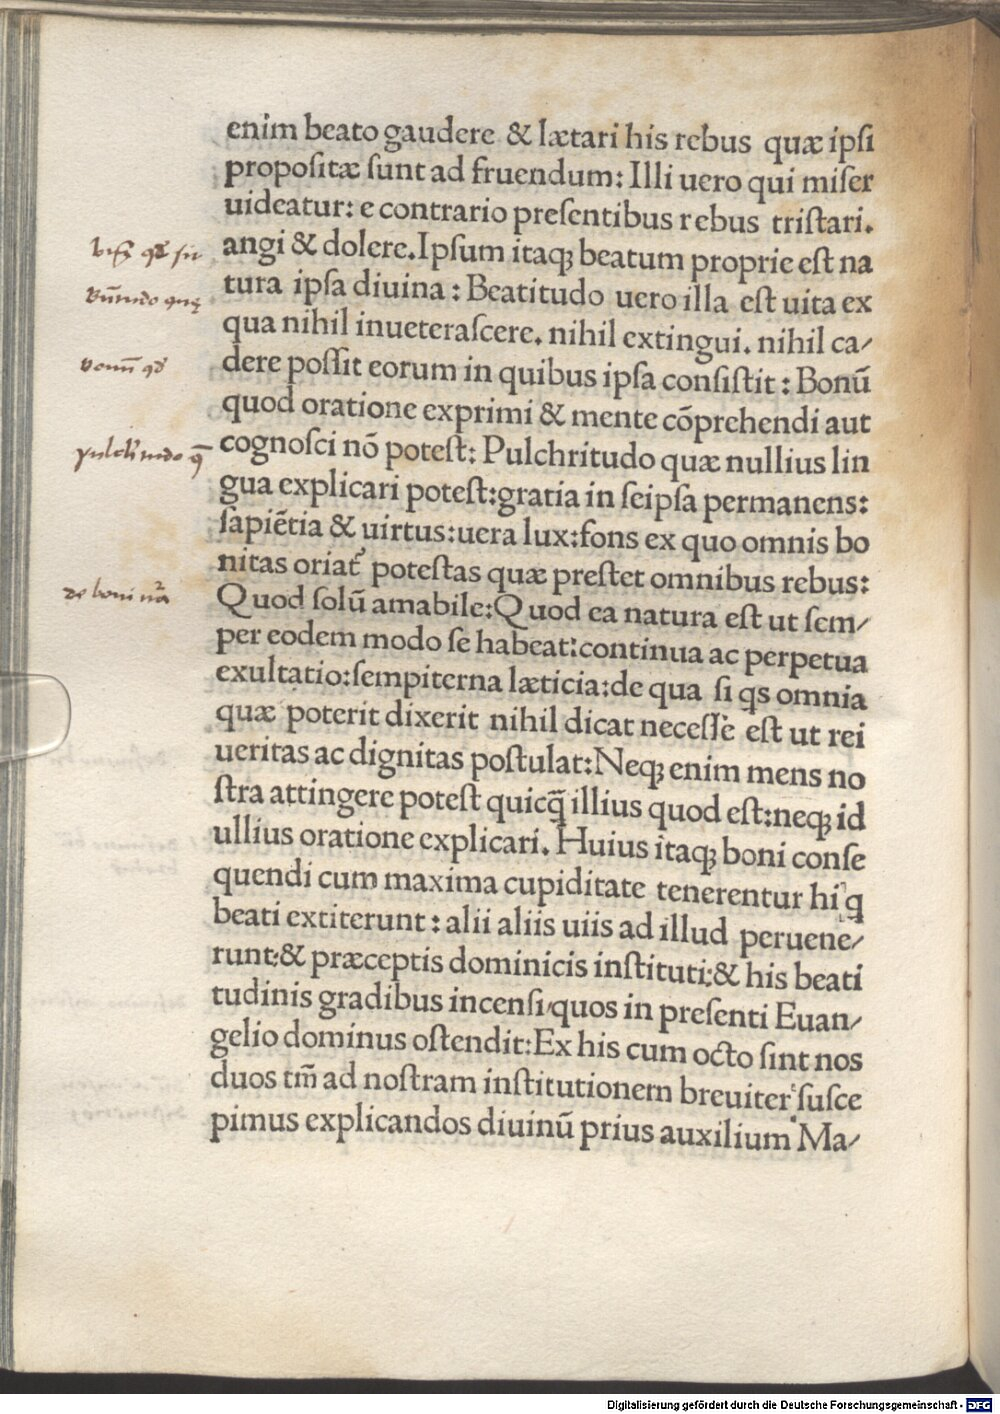 enim beato gaudere & lætari his rebus quæ ipſi
propoſitæ ſunt ad fruendum: Illi uero qui miſer
uideatur: e contrario preſentibus rebus triſtari.
angi & dolere. Ipſum itaqꝫ beatum proprie eſt na
tura ipſa diuina: Beatitudo uero illa eſt uita ex
qua nihil inueteraſcere. nihil extingui. nihil ca/
dere poſſit eorum in quibus ipſa conſiſtit: Bonū
quod oratione exprimi & mente cōprehendi aut
cognoſci nō poteſt: Pulchritudo quæ nullius lin
gua explicari poteſt: gratia in ſeipſa permanens:
ſapiētia & uirtus: uera lux: fons ex quo omnis bo
nitas oriat᷑ poteſtas quæ preſtet omnibus rebus:
Quod ſolū amabile: Quod ea natura eſt ut ſem/
per eodem modo ſe habeat: continua ac perpetua
exultatio: ſempiterna læticia: de qua ſi qs omnia
quæ poterit dixerit nihil dicat neceſſe eſt ut rei
ueritas ac dignitas poſtulat: Neqꝫ enim mens no
ſtra attingere poteſt quicq̄ illius quod eſt: neqꝫ id
ullius oratione explicari. Huius itaqꝫ boni conſe
quendi cum maxima cupiditate tenerentur hi q
beati extiterunt: alii aliis uiis ad illud peruene/
runt: & præceptis dominicis inſtituti: & his beati
tudinis gradibus incenſi/quos in preſenti Euan/
gelio dominus oſtendit: Ex his cum octo ſint nos
duos tm̄ ad noſtram inſtitutionem breuiter ſuſce
pimus explicandos diuinū prius auxilium Ma/
bonū qd
pulchritudo q̄
de boni nā
Digitalisierung gefördert durch die Deutsche Forschungsgemeinschaft - DFG